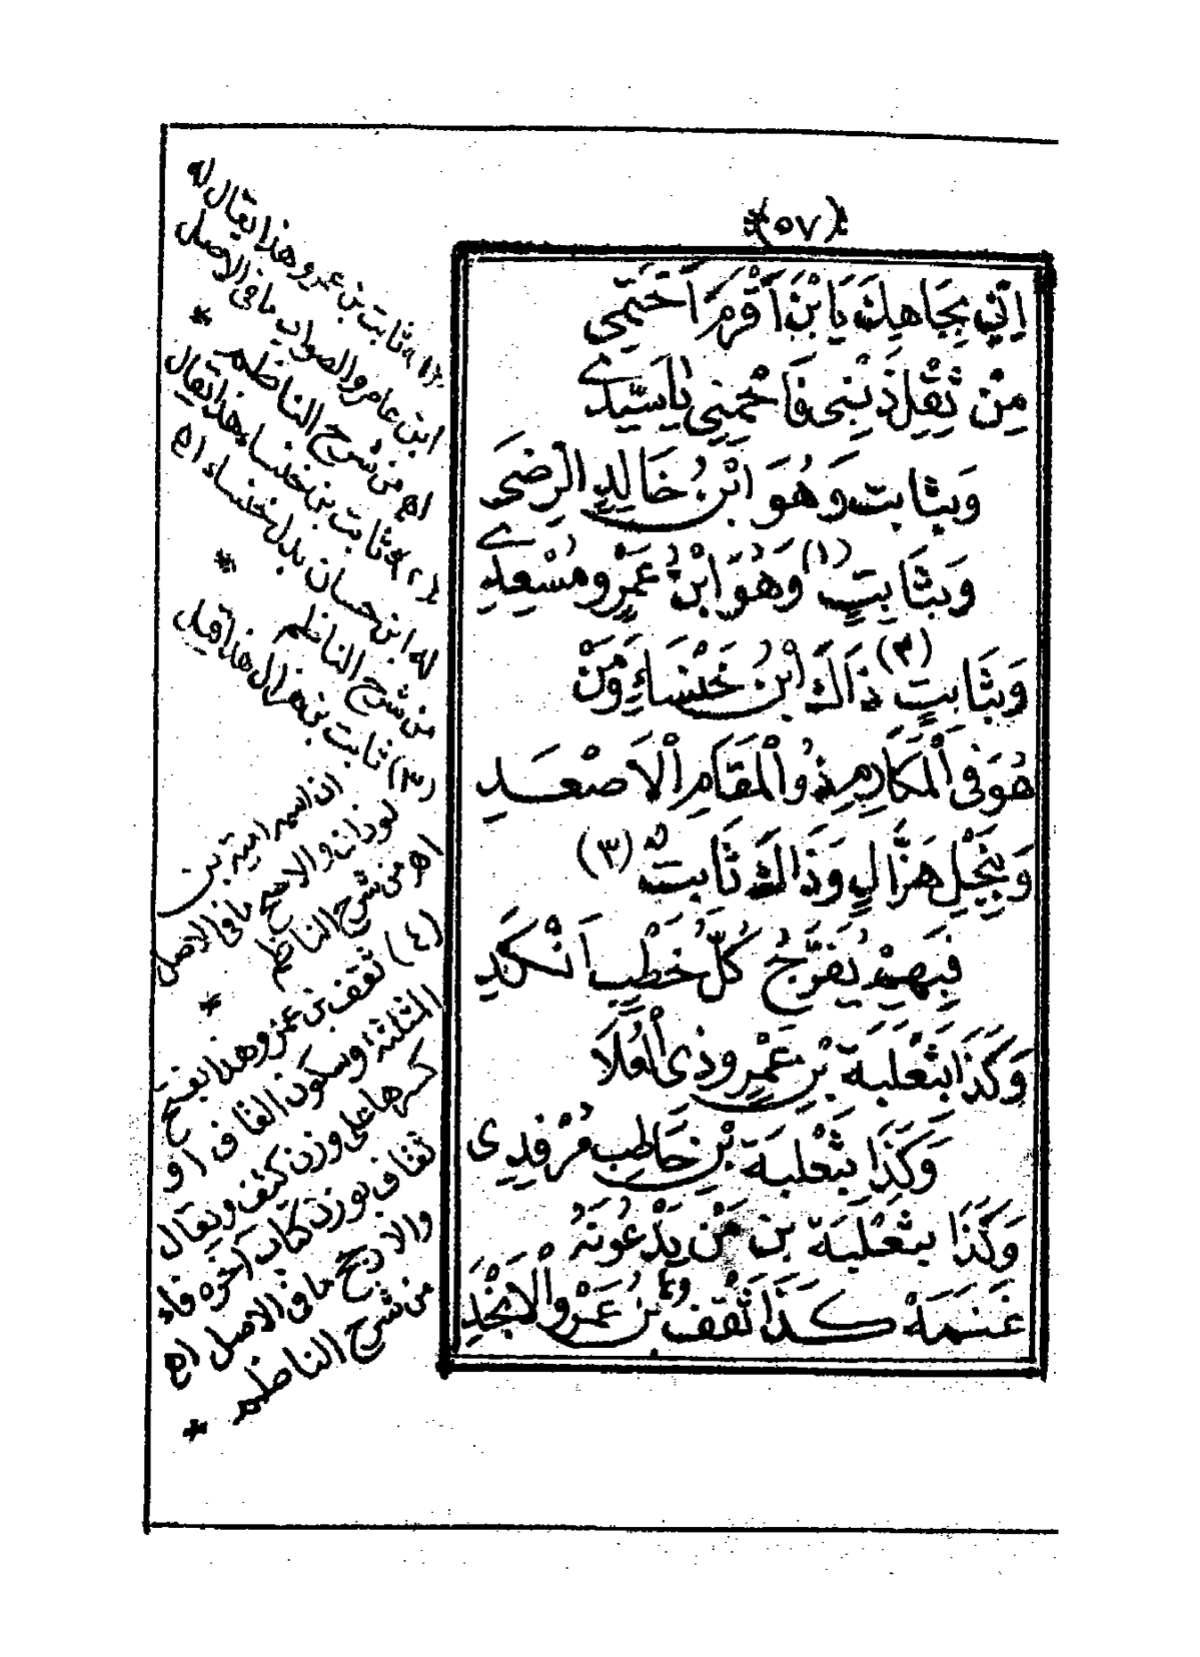 *(٥٧)*
اِنِّي بِجَاهِكَ يَابْنَ اَقْرَمَ اَحْتَمِي
مِنْ ثِقْلِ ذَنْبِي فَاحْمِنِي يَاسَيِّدِي
وَبِثَابِتٍ وَهُوَ ابْنُ خَالِدٍ الرِّضَى
وَبِثَابِتٍ (١) وَهُوَ ابْنُ عَمْرٍو مُسْعِدِي
وَبِثَابِتٍ (٢) ذَاكَ ابْنُ خَنْسَاءٍ وَمَنْ
هُوَ فِي الْمَكَارِمِ ذُو الْمَقَامِ الْاَصْعَدِ
وَبِنَجْلِ هَزَّالٍ وَذَاكَ ثَابِتٌ (٣)
فَبِهِمْ يُفَرَّجُ كُلُّ خَطْبٍ اَنْكَدِ
وَكَذَا بِثَعْلَبَةَ بْنِ عَمْرٍو ذِي الْعُلَا
وَكَذَا بِثَعْلَبَةَ بْنِ حَاطِبٍ مُرْفِدِي
وَكَذَا بِثَعْلَبَةَ بْنِ مَنْ يَدْعُونَهُ
عَنَمَةْ كَذَا ثَقْفُ (٤) بْنُ عَمْرٍو الْاَنْجَدِ
(١) ثابت بن عمرو هذا يقال له
ابن عامر والصواب ما في الاصل
اه من شرح الناظم *
(٢) ثابت بن خنساء هذا يقال
له ابن حسان بدل خنساء اه
من شرح الناظم *
(٣) ثابت بن هزال هذا قيل
ان اسمه امية بن
لوذان والاصح ما في الاصل
اه من شرح الناظم *
(٤) ثقف بن عمرو هذا بفتح
المثلثة وسكون القاف او
كسرها على وزن كتف ويقال
ثقاف بوزن كتاب آخره فاء
والارجح ما في الاصل اه
من شرح الناظم *